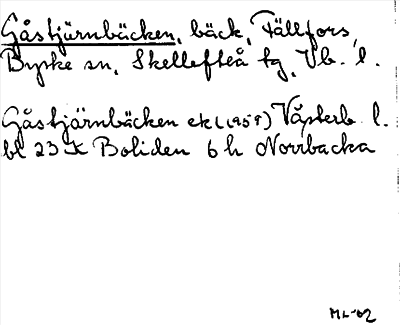 Gåstjärnbäcken, bäck, Fällfors,
Byske sn, Skellefteå tg, Vb. l.
Gåstjärnbäcken ek (1959) Västerb l.
bl 23 K Boliden 6 h Norrbacka
ML-62